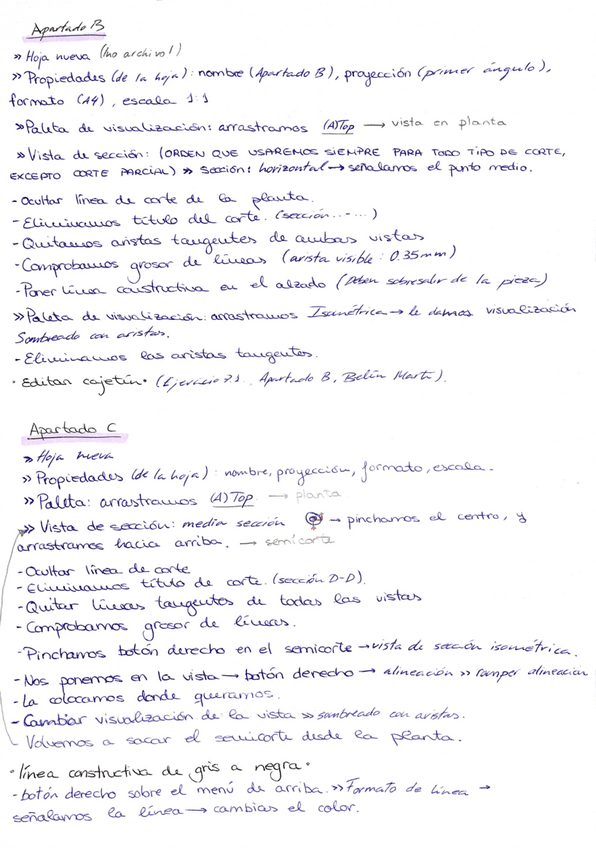 Apartado B
» Hoja nueva (¡no archivo!)
» Propiedades (de la hoja): nombre (Apartado B), proyección (primer ángulo),
formato (A4), escala 1:1
» Paleta de visualización: arrastramos (A)Top → vista en planta
» Vista de sección: (ORDEN QUE USAREMOS SIEMPRE PARA TODO TIPO DE CORTE,
EXCEPTO CORTE PARCIAL) » Sección: horizontal → señalamos el punto medio.
- Ocultar línea de corte de la planta.
- Eliminamos título del corte. (sección..-...)
- Quitamos aristas tangentes de ambas vistas
- Comprobamos grosor de líneas (arista visible: 0.35mm)
- Poner línea constructiva en el alzado (Deben sobresalir de la pieza)
» Paleta de visualización: arrastramos Isométrica → le damos visualización
Sombreado con aristas.
- Eliminamos las aristas tangentes.
· Editar cajetín. (Ejercicio 7.1. Apartado B, Belén Martí).
Apartado C
» Hoja nueva
» Propiedades (de la hoja): nombre, proyección, formato, escala.
» Paleta: arrastramos (A)TOP → planta
» Vista de sección: media sección → pinchamos el centro, y
arrastramos hacia arriba. → semicorte
- Ocultar línea de corte
- Eliminamos título de corte. (sección D-D).
- Quitar líneas tangentes de todas las vistas
- Comprobamos grosor de líneas.
- Pinchamos botón derecho en el semicorte → vista de sección isométrica.
- Nos ponemos en la vista → botón derecho → alineación » romper alineación
- La colocamos donde queramos.
- Cambiar visualización de la vista » sombreado con aristas.
- Volvemos a sacar el semicorte desde la planta.
· línea constructiva de gris a negra·
- botón derecho sobre el menú de arriba. » Formato de línea →
señalamos la línea → cambias el color.